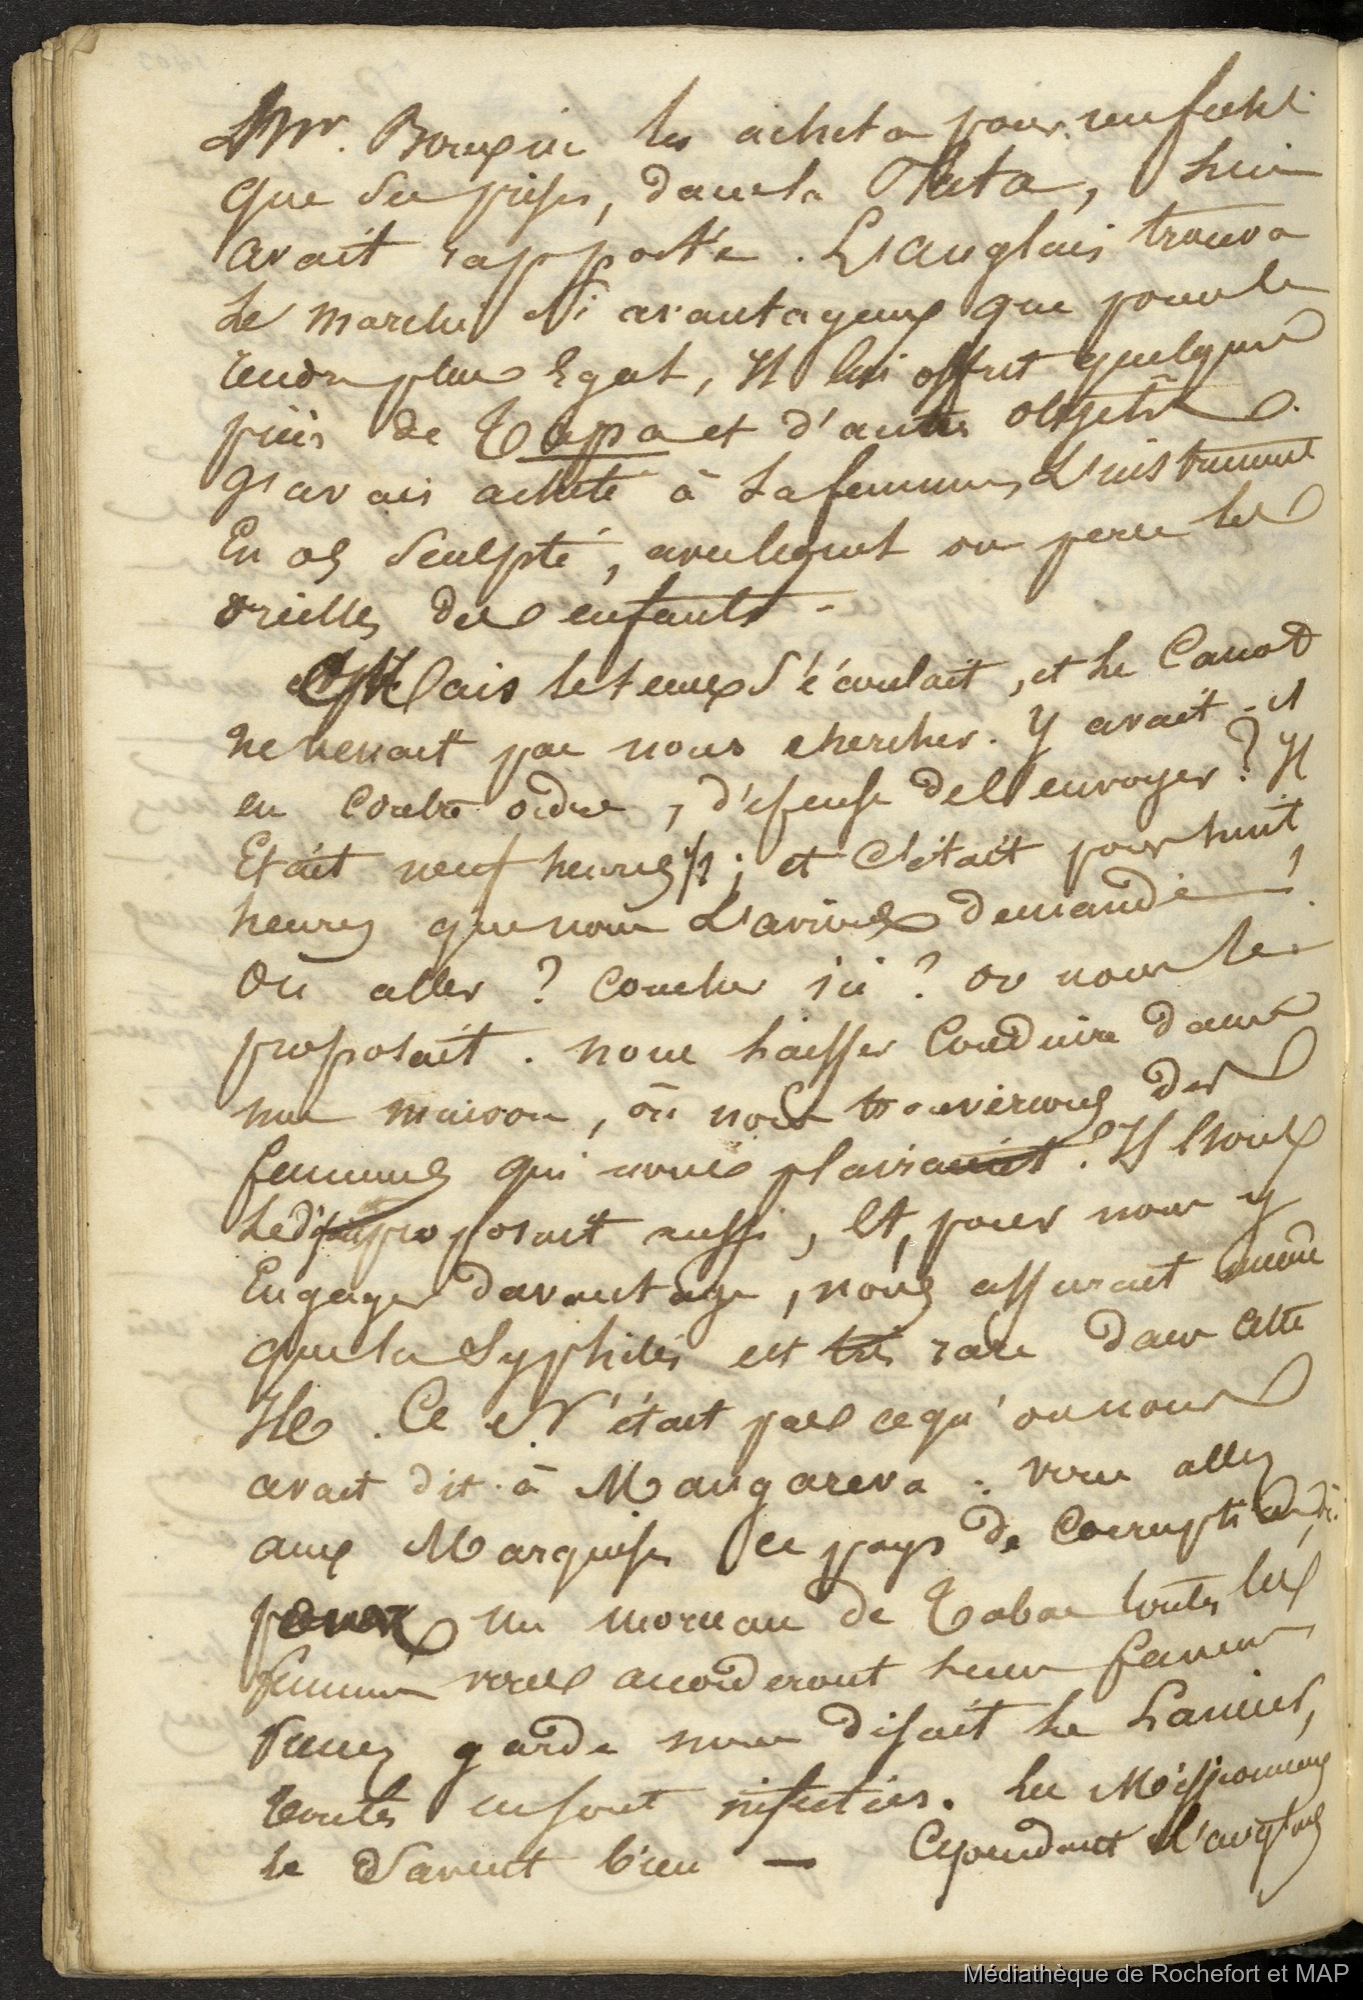 Mr. Bouxin les acheta pour un fusil
que ses prises, dans la Plata, lui
avait rapporté. L'anglais trouva
Le marché si avantageux que pour le
rendre plus Egal, Il lui offrit quelques
pièces de Tapa et d'autres objets.
J'avais acheté à Sa femme, L'instrument
En os Sculpté, avec lequel on perce les
oreilles des enfants -
Mais le temps S'écoulait, et Le Canot
ne venait pas nous chercher. Y avait-il
eu Contre ordre, défense de l'envoyer? Il
Etait neuf heures; et C'était pour huit
heures que nous L'avions demandé!
Où aller? Coucher ici? on nous le
proposait. nous laisser Conduire dans
une maison, où nous trouverions des
femmes qui nous plairaient? Il nous
Le proposait aussi, Et, pour nous y
Engager davantage, nous assurait
que la Syphilis est très rare dans cette
Ile. Ce N'était pas ce qu'on nous
avait dit à Mangareva. vous allez
aux Marquises ce pays de Corruption,
pour un morceau de Tabac toutes les
femmes vous accorderont leurs faveurs
Prenez garde nous disait le
toutes en sont infectées. les Missionnaires
le Savent bien — Cependant L'anglais
Médiathèque de Rochefort et MAP